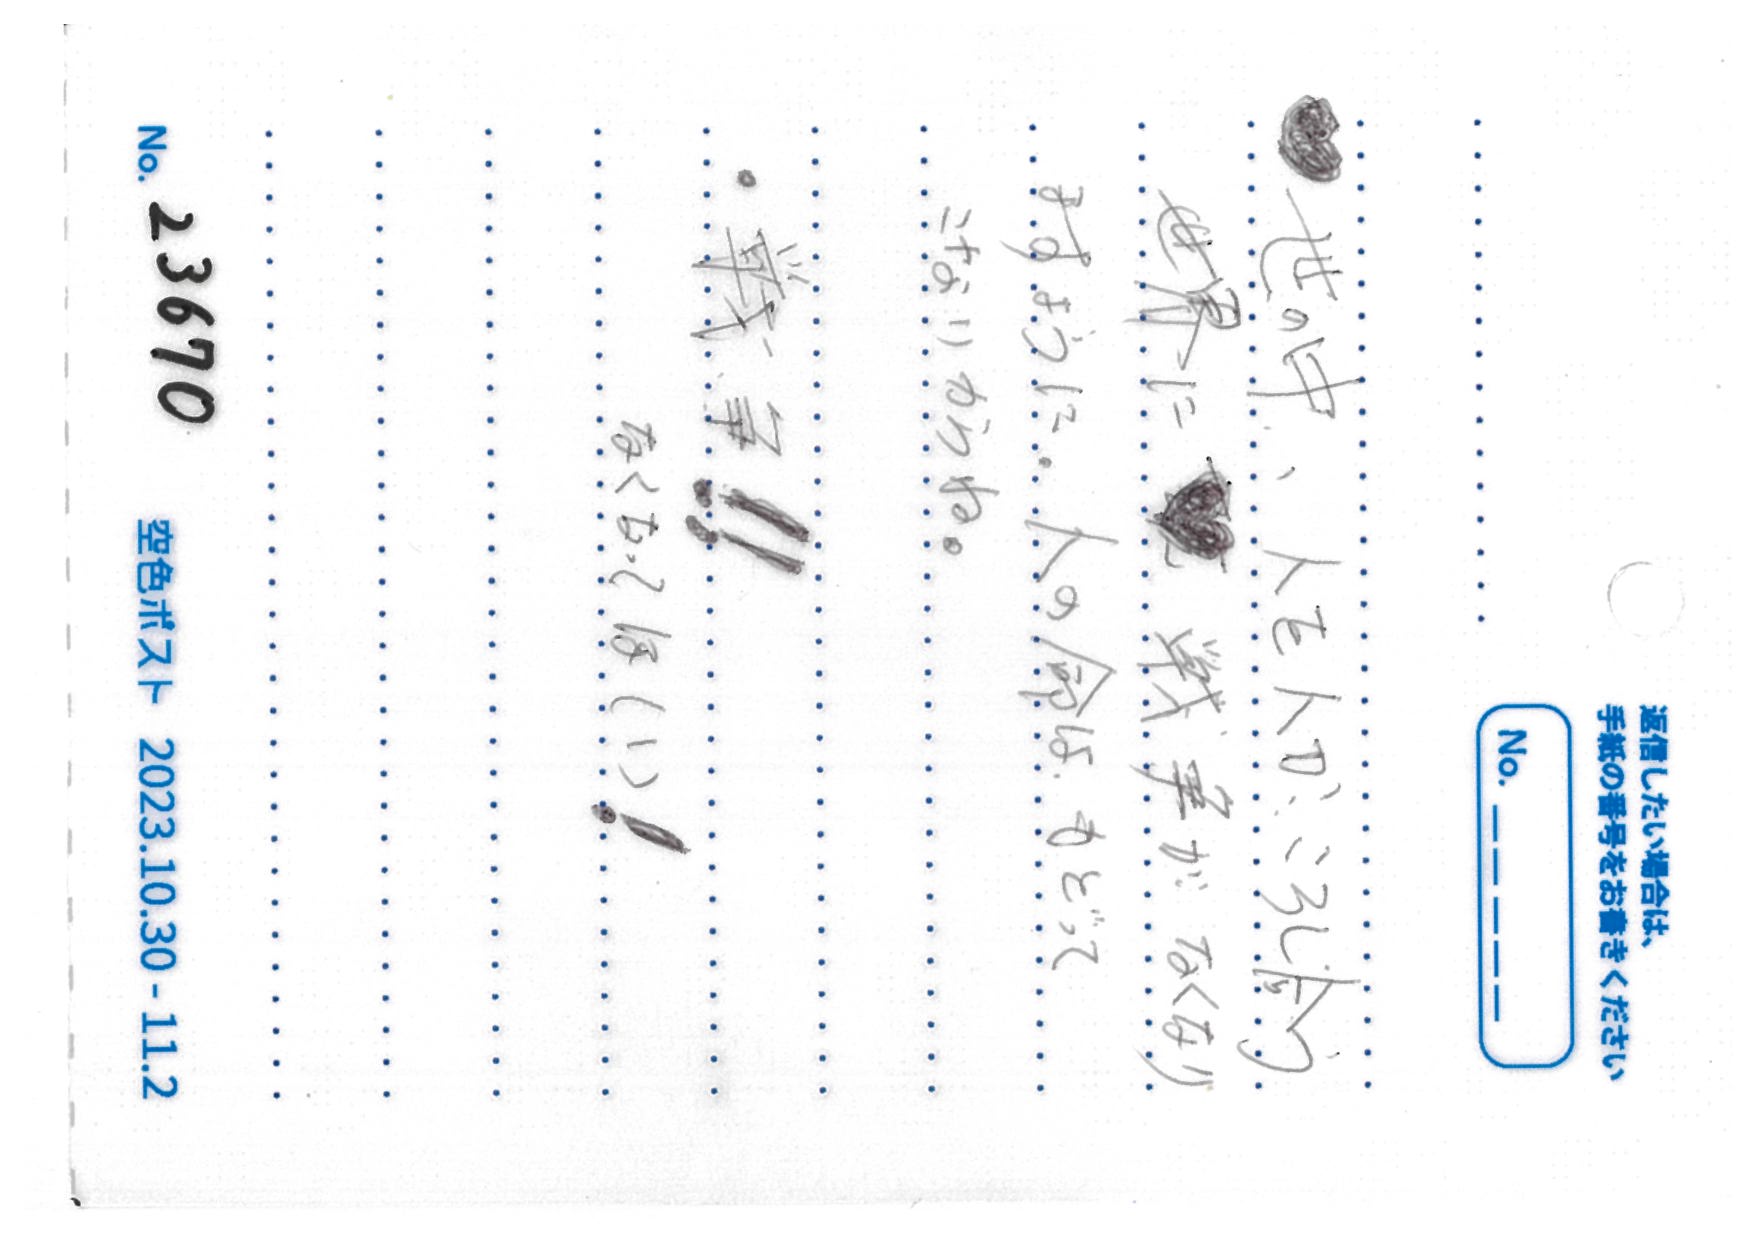 返信したい場合は、
手紙の番号をお書きください
No.
♥世の中、人を人がころし合う
世界に♥戦争がなくなり
ますように。人の命はもどって
こないからね。
・戦争!!
なくなってほしい!
No. 23670
空色ポスト 2023.10.30 - 11.2